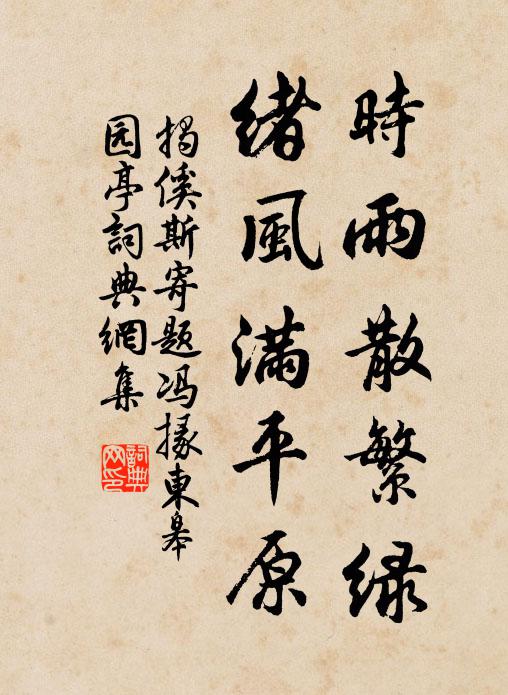 時雨散繁緑
緒風满平原
揭傒斯寄题冯掾東皋
园亭詞典網集
詞典网印